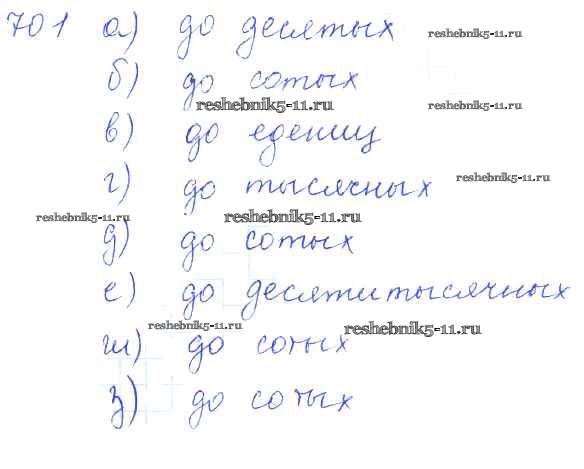 701 а) до десятых
reshebnik5-11.ru
б) до сотых
reshebnik5-11.ru reshebnik5-11.ru
в) до едениц
г) до тысячных reshebnik5-11.ru
reshebnik5-11.ru reshebnik5-11.ru
д) до сотых
е) до десятитысячных
reshebnik5-11.ru reshebnik5-11.ru
ж) до сотых
з) до сотых